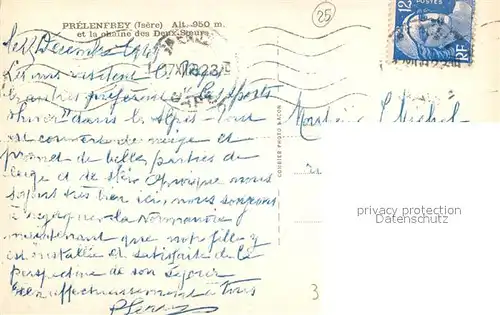 PRÉLENFREY (Isère) Alt. 950 m.
et la chaîne des Deux-Sœurs
25
12
POSTES
RF
le Décembre 1949
Les uns visitent
les autres préfèrent les sports
d'hiver" dans les Alpes - Tout
est couvert de neige et
promet de belles parties de
luge et de skis. Quoique nous
soyons très bien ici, nous songeons
à regagner la Normandie
maintenant que notre fille y
est installée et satisfaite de la
perspective de son séjour
Bien affectueusement à Tous
Monsieur
COMBIER PHOTO MACON
privacy protection
Datenschutz
3